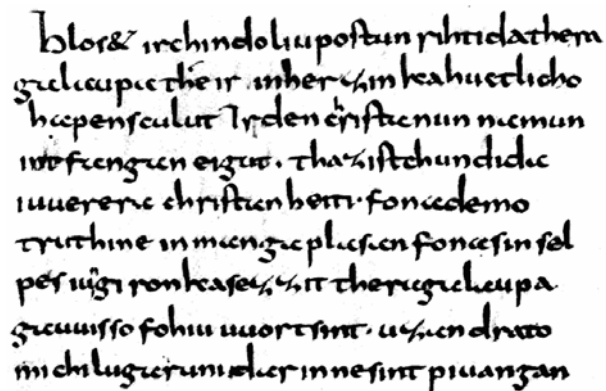 hlos& ir chindo liupostun rihtida thera
galaupa the ir in herzin kahuctlicho
hapen sculut Ir den christanun namun
intfangan eigut. thaz ist chundida
iuuerera christanheiti. fona demo
truhtine in man gaplasan fona sin sel
pes iungiron kasezzit thera galaupa
gauuisso fohiu uuort sint. uzan drato
michilu garuni dar inne sint piuangan